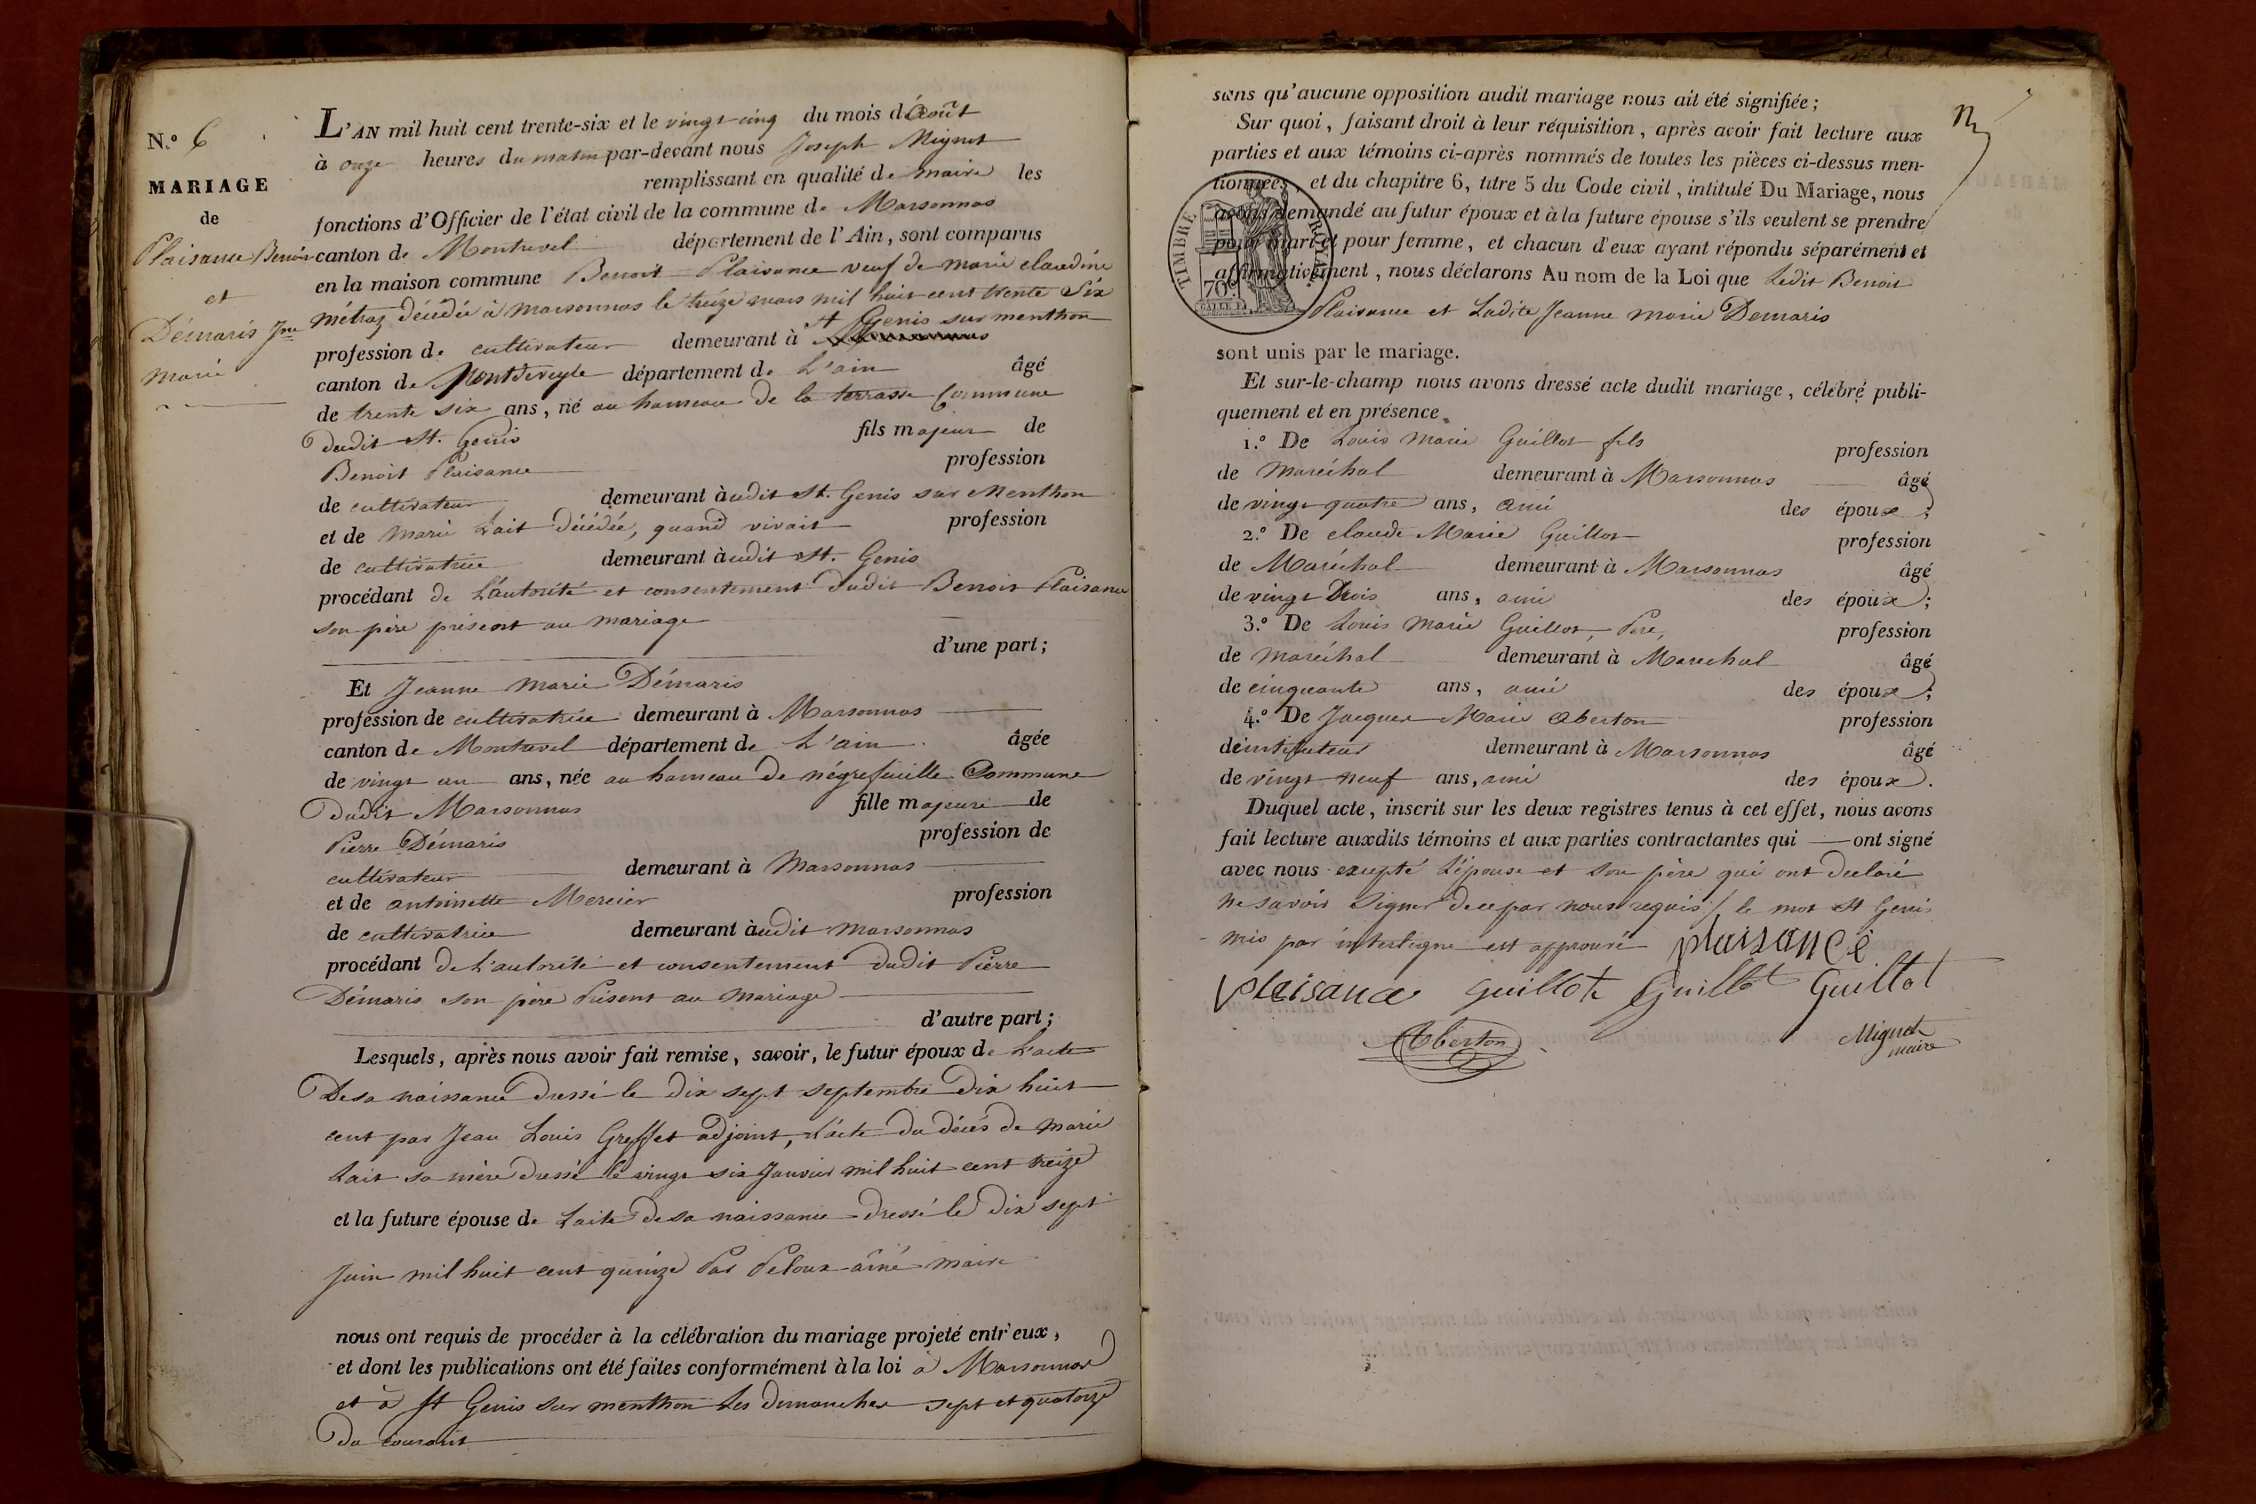 N.º 6
MARIAGE
de
Plaisance Benoit
et
Démaris Jne
marie
L'AN mil huit cent trente-six et le vingt cinq du mois d'Août
à onze heures du matin par-devant nous Joseph Mignet
remplissant en qualité de maire les
fonctions d'Officier de l'état civil de la commune de Marsonnas
canton de Montrevel département de l'Ain, sont comparus
en la maison commune Benoit Plaisance veuf de marie claudine
métraz décédée à marsonnas le treize mars mil huit cent trente six
St Genis sur menthon
profession de cultivateur demeurant à
canton de Pontdeveyle département de L'ain âgé
de trente six ans, né au hameau de la terrasse Commune
dudit St. Genis fils majeur de
Benoit Plaisance profession
de cultivateur demeurant àudit St. Genis sur Menthon
et de Marie Lait décédée, quand vivait profession
de cultivatrice demeurant àudit St. Genis
procédant de L'autorité et consentement dudit Benoit Plaisance
son père présent au mariage
d'une part;
Et Jeanne Marie Démaris
profession de cultivatrice demeurant à Marsonnas
canton de Montrevel département de L'ain âgée
de vingt un ans, née au hameau de négrefeuille Commune
dudit Marsonnas fille majeure de
Pierre Démaris profession de
cultivateur demeurant à Marsonnas
et de antoinette Mercier profession
de cultivatrice demeurant àudit marsonnas
procédant de L'autorité et consentement dudit Pierre
Démaris son père Présent au mariage
d'autre part;
Lesquels, après nous avoir fait remise, savoir, le futur époux de L'acte
De sa naissance dressé le dix sept septembre dix huit
cent par Jean Louis Greffet adjoint, L'acte du décès de marie
Lait sa mère dressé le vingt six Janvier mil huit cent treize
et la future épouse de L'acte de sa naissance dressé le dix sept
Juin mil huit cent quinze Par Peloux aîné maire
nous ont requis de procéder à la célébration du mariage projeté entr'eux,
et dont les publications ont été faites conformément à la loi à Marsonnas
et à St Genis sur menthon les dimanches sept et quatorze
du courant
sans qu'aucune opposition audit mariage nous ait été signifiée;
Sur quoi, faisant droit à leur réquisition, après avoir fait lecture aux
parties et aux témoins ci-après nommés de toutes les pièces ci-dessus men-
tionnées, et du chapitre 6, titre 5 du Code civil, intitulé Du Mariage, nous
avons demandé au futur époux et à la future épouse s'ils veulent se prendre
pour mari et pour femme, et chacun d'eux ayant répondu séparément et
affirmativement, nous déclarons Au nom de la Loi que Ledit Benoit
Plaisance et Ladite Jeanne marie Demaris
TIMBRE ROYAL
70c
sont unis par le mariage.
Et sur-le-champ nous avons dressé acte dudit mariage, célébré publi-
quement et en présence
1.º De Louis Marie Guillot fils profession
de maréchal demeurant à Marsonnas âgé
de vingt quatre ans, ami des époux;
2.º De claude Marie Guillot profession
de Maréchal demeurant à Marsonnas âgé
de vingt Trois ans, ami des époux;
3.º De Louis Marie Guillot, Pere, profession
de maréchal demeurant à Marechal âgé
de cinquante ans, ami des époux;
4.º De Jacques Marie Aberton profession
de intituteur demeurant à Marsonnas âgé
de vingt neuf ans, ami des époux.
Duquel acte, inscrit sur les deux registres tenus à cet effet, nous avons
fait lecture auxdits témoins et aux parties contractantes qui ont signé
avec nous excepté L'épouse et son père qui ont declaré
ne savoir signer de ce par nous requis / le mot St Genis
mis par interligne est approuvé plaisance
plaisance guillot Guillot Guillot
Aberton
Mignet
maire